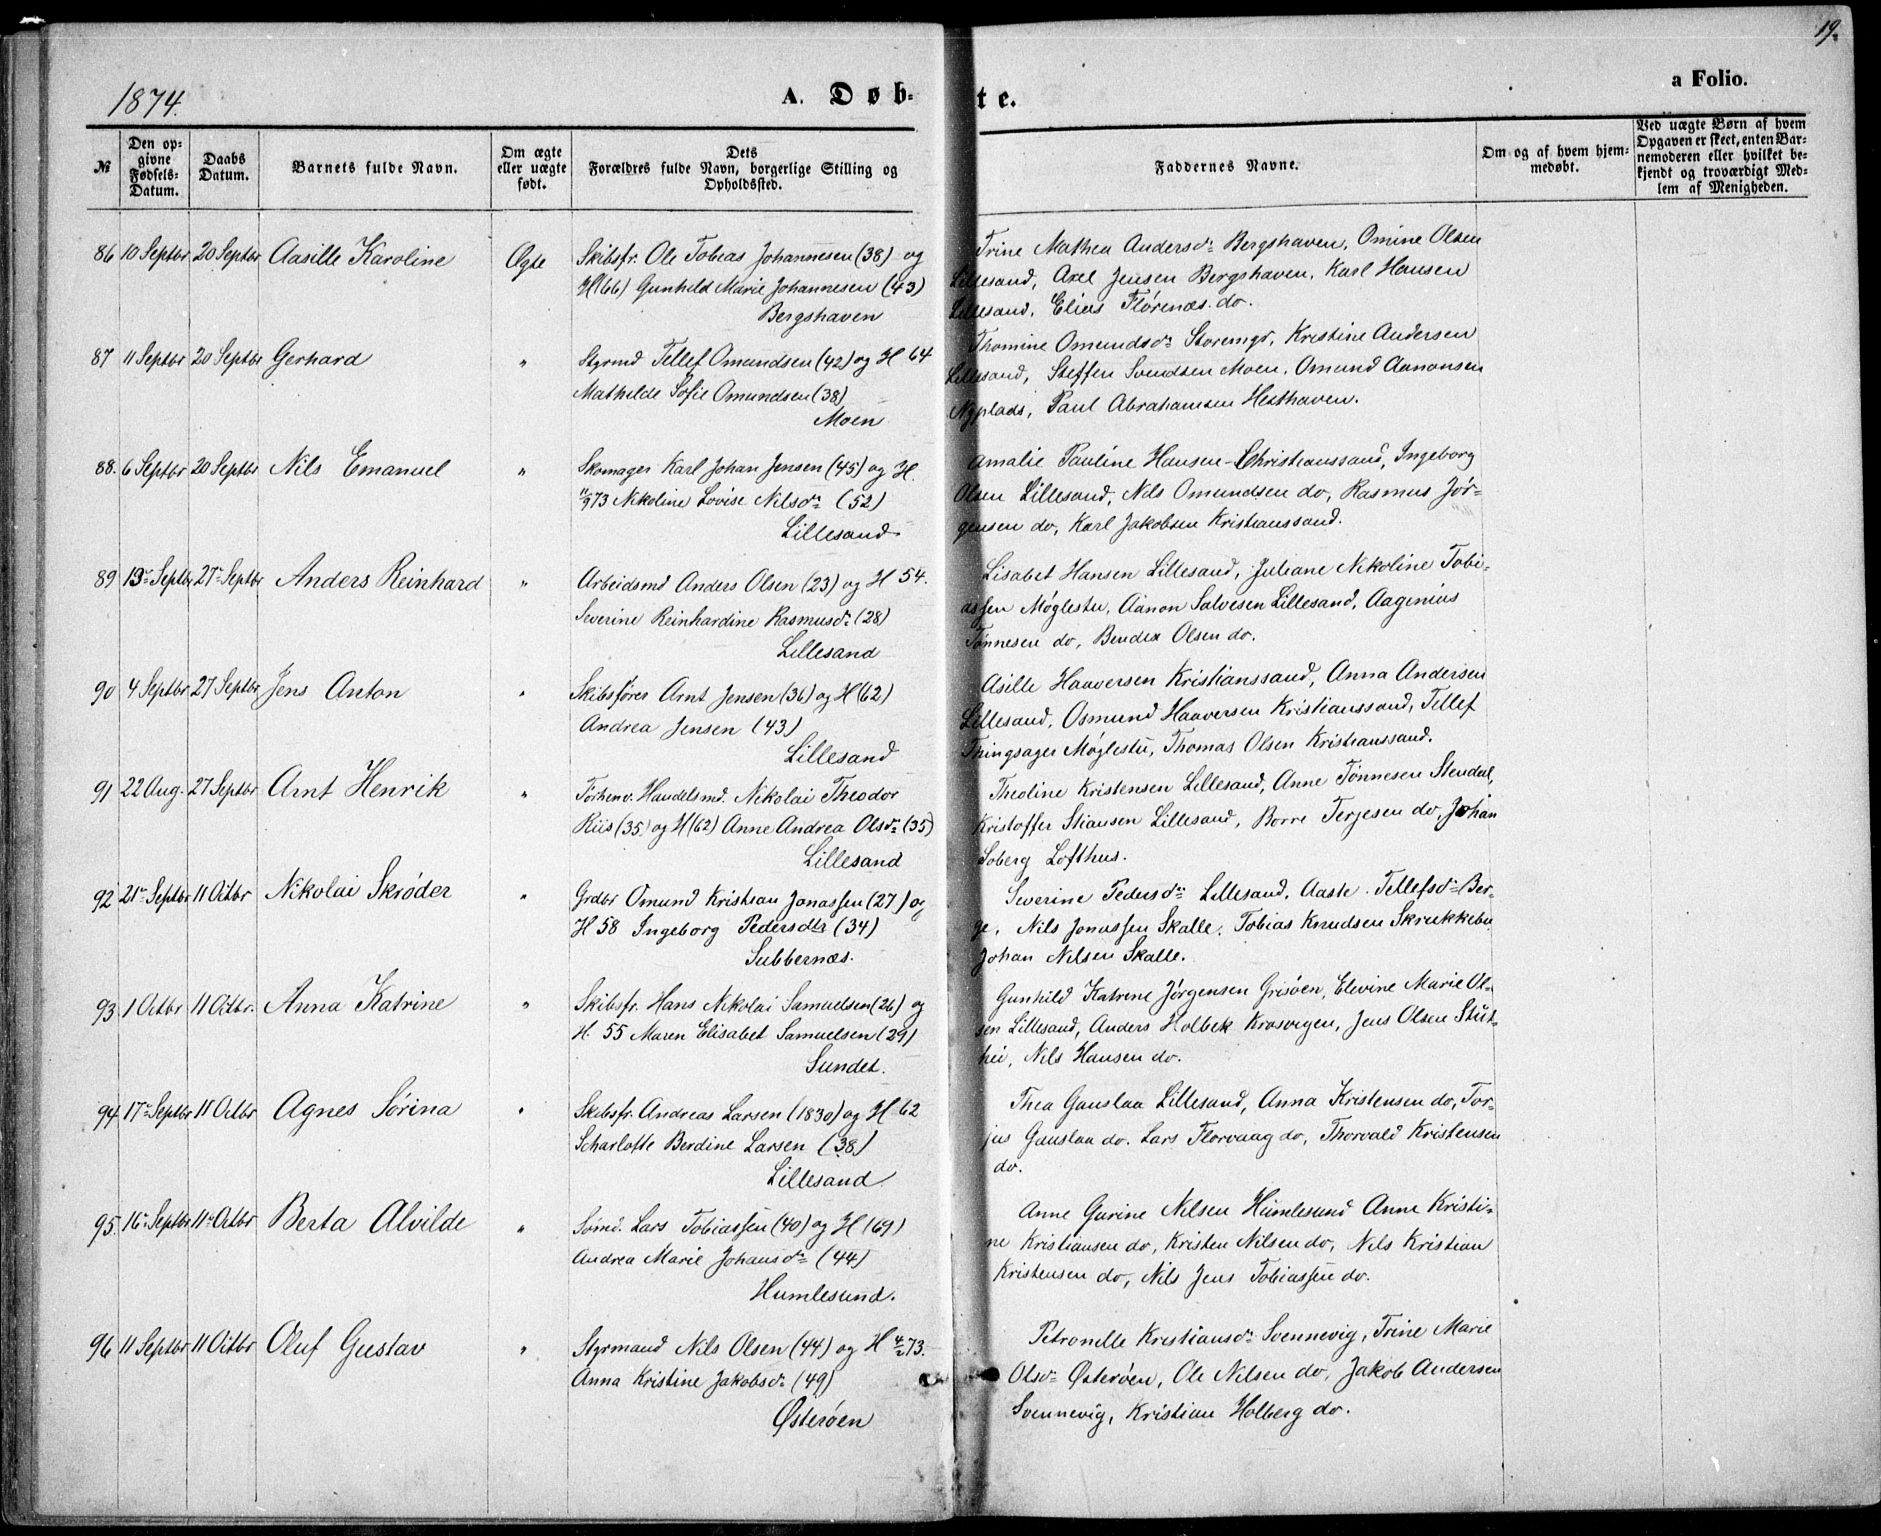 19.
1874.
A. Døb-
te.
a Folio.
№
Den op-
givne
Fødsels-
Datum.
Daabs
Datum.
Barnets fulde Navn.
Om ægte
eller uægte
født.
Dets
Forældres fulde Navn, borgerlige Stilling og
Opholdssted.
Faddernes Navne.
Om og af hvem hjem-
medøbt.
Ved uægte Børn af hvem
Opgaven er skeet, enten Bar-
nemoderen eller hvilket be-
kjendt og troværdigt Med-
lem af Menigheden.
86 10 Septbr 20 Septbr Aasille Karoline Ægte Skibsfr. Ole Tobias Johannesen (38) og
H(66) Gunhild Marie Johannesen (43)
Bergshaven
Trine Mathea Andersdr Bergshaven, Omine Olsen
Lillesand, Axel Jensen Bergshaven, Karl Hansen
Lillesand, Elias Flørenæs do.
87 11 Septbr 20 Septbr Gerhard " Styrmd Tellef Omundsen (42) og H 64
Mathilde Sofie Omundsen (38)
Moen
Thomine Omundsdr Storemgr, Kristine Andersen
Lillesand, Steffen Svendsen Moen, Omund Aanonsen
Nyplads, Paul Abrahamsen Hesthaven.
88. 6 Septbr 20 Septbr Nils Emanuel " Skomager Karl Johan Jensen (45) og H.
11/9 73 Nikoline Lovise Nilsdr (52)
Lillesand
Amalie Pauline Hansen Christianssand, Ingeborg
Olsen Lillesand, Nils Omundsen do, Rasmus Jør-
gensen do, Karl Jakobsen Kristianssand.
89 13 Septbr 27 Septbr Anders Reinhard " Arbeidsmd Anders Olsen (23) og H 54.
Severine Reinhardine Rasmusdr (28)
Lillesand
Lisabet Hansen Lillesand, Juliane Nikoline Tobi-
assen Møglestu, Aanon Salvesen Lillesand, Aaginius
Tønnesen do, Bendix Olsen do.
90 4 Septbr 27 Septbr Jens Anton " Skibsfører Arnt Jensen (36) og H(62)
Andrea Jensen (43)
Lillesand
Asille Haaversen Kristianssand, Anna Andersen
Lillesand, Osmund Haaversen Kristianssand, Tellef
Thingsager Møglestu, Thomas Olsen Kristianssand.
91 22 Aug. 27 Septbr Arnt Henrik " Forhenv. Handelsmd. Nikolai Theodor
Riis (35) og H(62) Anne Andrea Olsdr (35)
Lillesand
Theoline Kristensen Lillesand, Anne Tønnesen Stendal,
Kristoffer Stiansen Lillesand, Borre Terjesen do, Johan
Soberg Lofthus.
92 21 Septbr 11 Octbr Nikolai Skrøder " Grdbr Omund Kristian Jonassen (27) og
H 58 Ingeborg Pedersdtr (34)
Subbernæs.
Severine Pedersdr Lillesand, Aaste Tellefsdr Ber-
ge, Nils Jonassen Skalle, Tobias Knudsen Skrukkebu
Johan Nilsen Skalle.
93 1 Octbr 11 Octbr. Anna Katrine " Skibsfr. Hans Nikolai Samuelsen (26) og
H. 55 Maren Elisabet Samuelsen (29)
Sundet.
Gunhild Katrine Jørgensen Grisøen, Elevine Marie Ol-
sen Lillesand, Anders Holbek Krosvegen, Jens Olsen Stut-
hei, Nils Hansen do.
94 17 Septbr 11 Octbr Agnes Sørina " Skibsfr. Andreas Larsen (1830) og H 62
Scharlotte Berdine Larsen (38)
Lillesand
Thea Gauslaa Lillesand, Anna Kristensen do, Tor-
jus Gauslaa do. Lars Florvaag do, Thorvald Kristensen
do.
95. 16 Septbr 11 Octbr Berta Alvilde " Sømd. Lars Tobiassen (40) og H(69)
Andrea Marie Johansdr (44)
Humlesund.
Anne Gurine Nilsen Humlesund Anne Kristi-
ne Kristiansen do, Kristen Nilsen do, Nils Kristian
Kristensen do, Nils Jens Tobiassen do.
96 11 Septbr 11 Octbr Oluf Gustav " Styrmand Nils Olsen (44) og H 4/2 73.
Anna Kristine Jakobsdr (49)
Østerøen
Petronelle Kristiansdr Svennevig, Trine Marie
Olsdr Østerøen, Ole Nilsen do, Jakob Andersen
Svennevig, Kristian Holberg do.